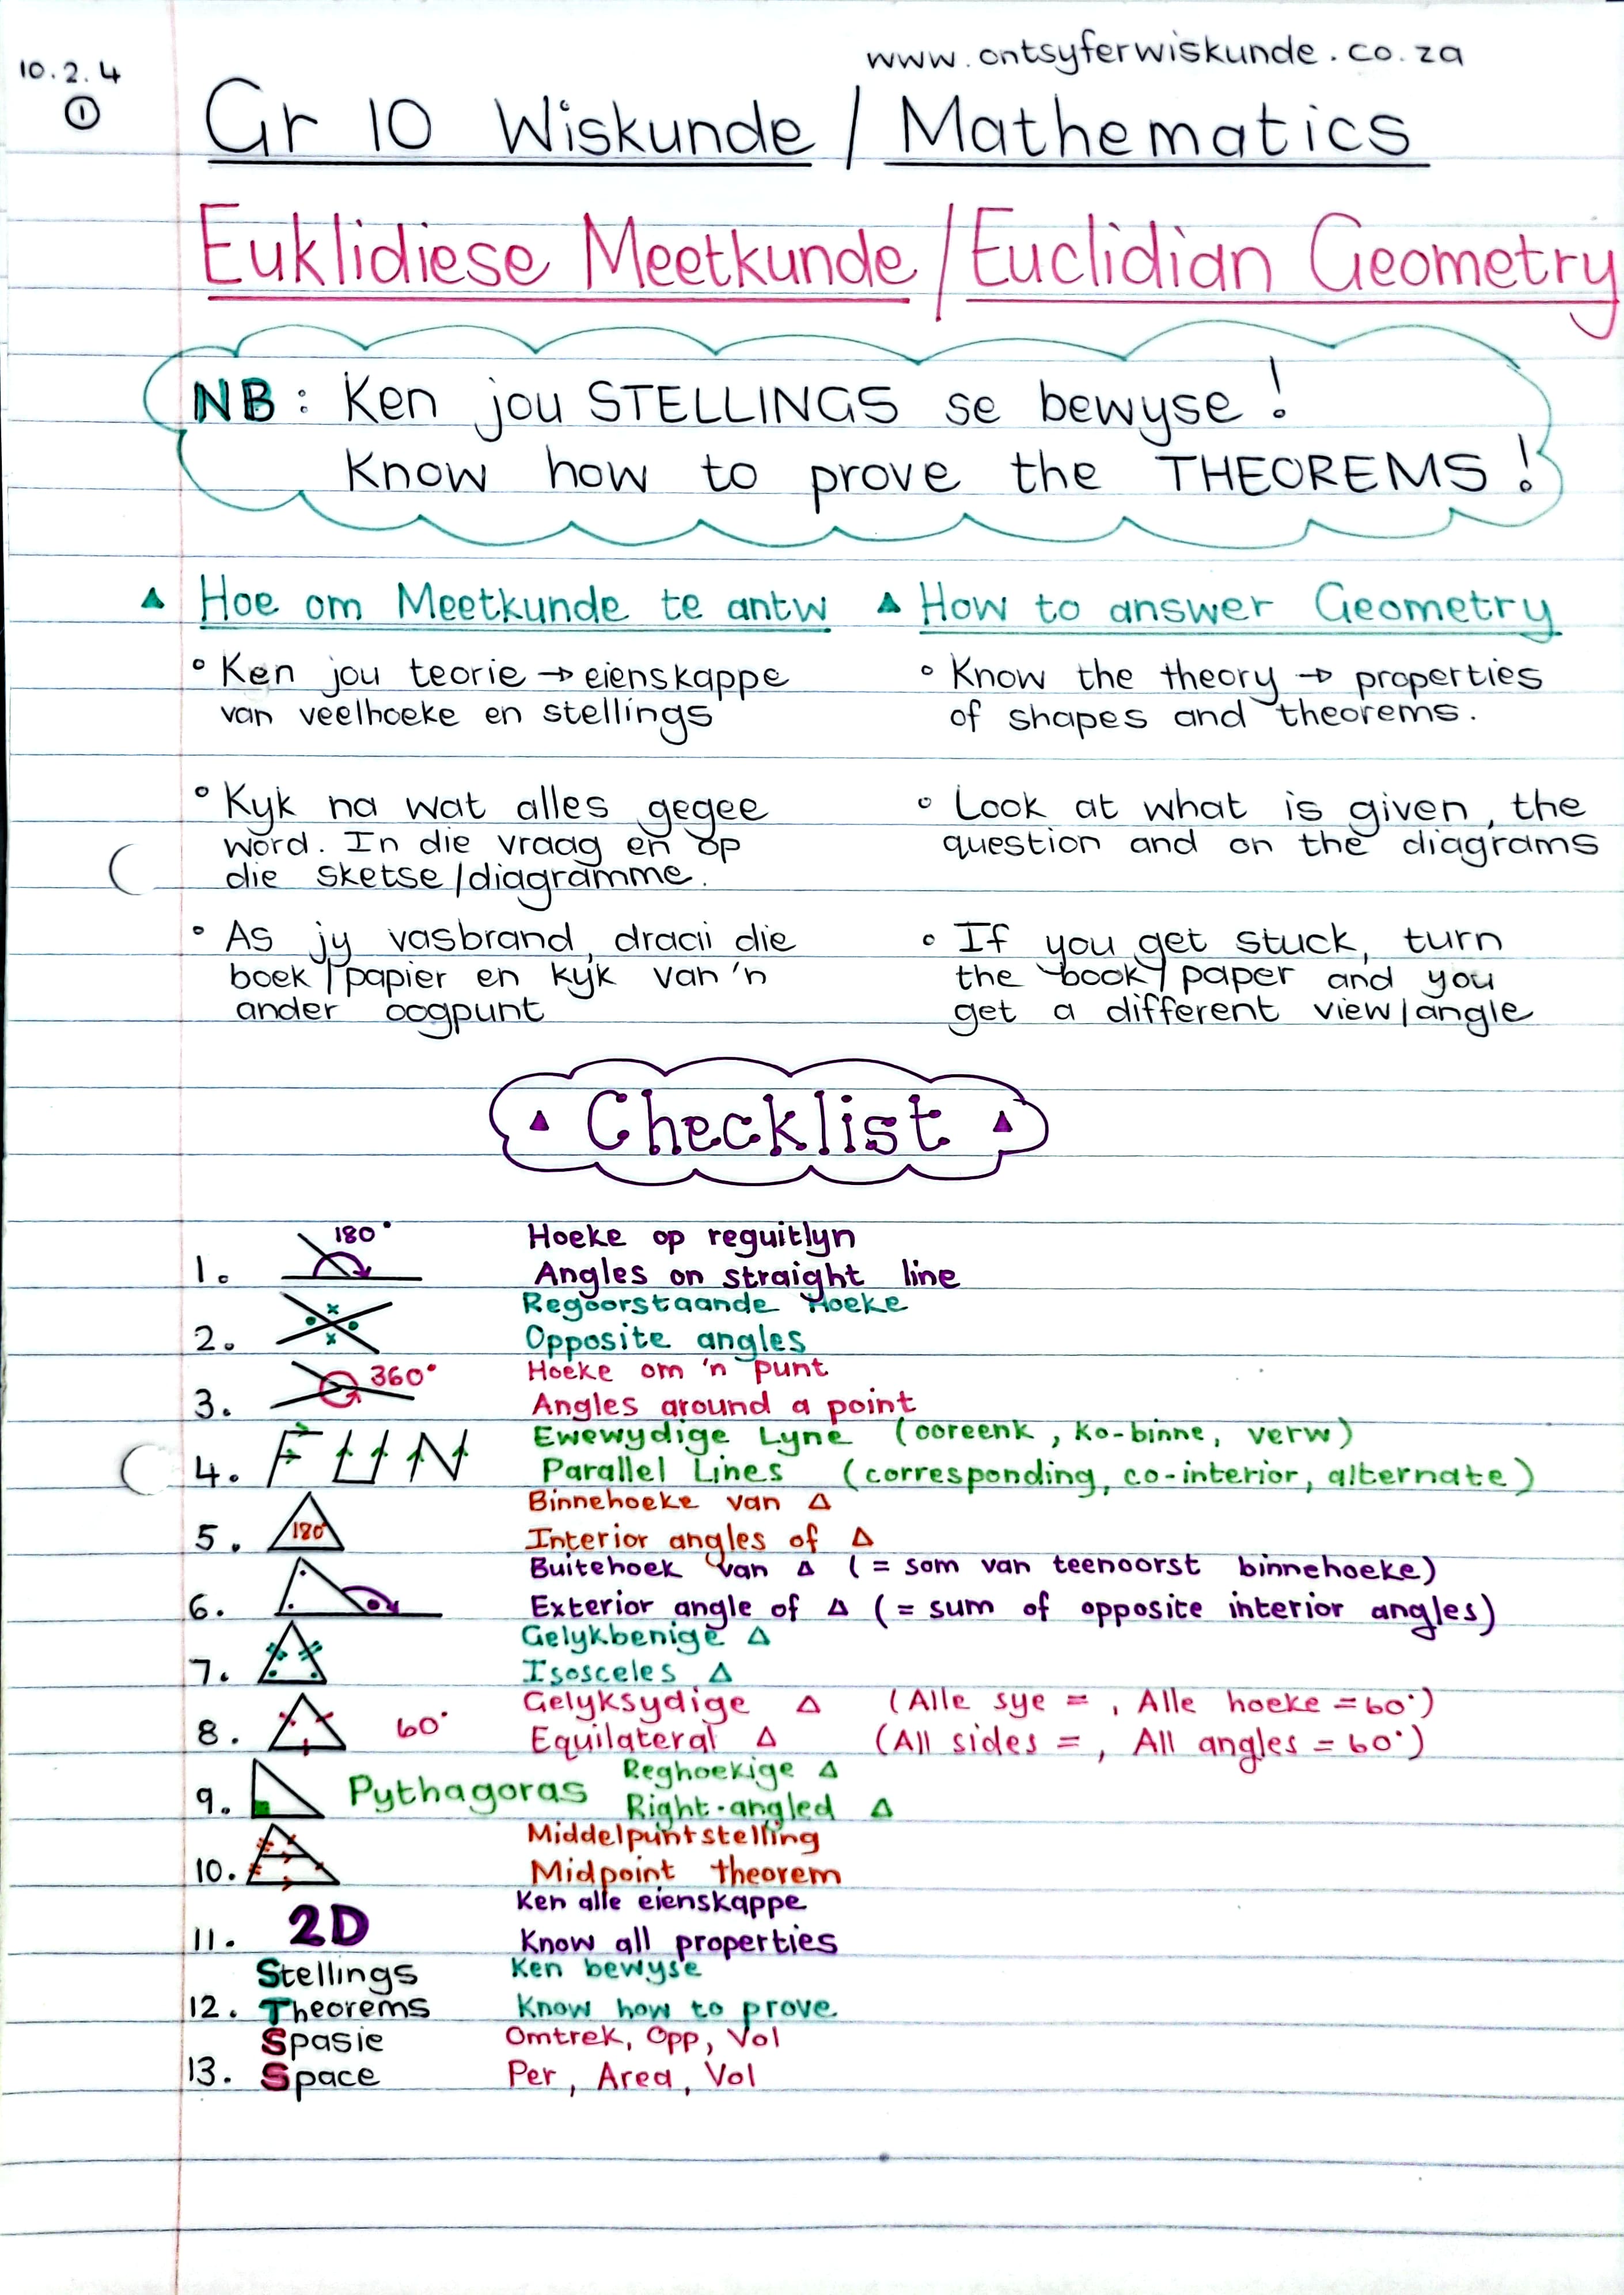 www.ontsyferwiskunde.co.za
10.2.4
1
Gr 10 Wiskunde / Mathematics
Euklidiese Meetkunde / Euclidian Geometry
NB: Ken jou STELLINGS se bewyse!
Know how to prove the THEOREMS!
Hoe om Meetkunde te antw
° Ken jou teorie → eienskappe
van veelhoeke en stellings
° Kyk na wat alles gegee
word. In die vraag en op
die sketse/diagramme.
° As jy vasbrand, draaii die
boek/papier en kyk van 'n
ander oogpunt
How to answer Geometry
° Know the theory → properties
of shapes and theorems.
° Look at what is given, the
question and on the diagrams
° If you get stuck, turn
the book/paper and you
get a different view/angle
Checklist
1. 180° Hoeke op reguitlyn
Angles on straight line
2. Regoorstaande Hoeke
Opposite angles
3. 360° Hoeke om 'n punt
Angles around a point
4. F U N Ewewydige Lyne (ooreenk, ko-binne, verw)
Parallel Lines (corresponding, co-interior, alternate)
5. 180° Binnehoeke van Δ
Interior angles of Δ
6. Buitehoek van Δ (= som van teenoorst binnehoeke)
Exterior angle of Δ (= sum of opposite interior angles)
7. Gelykbenige Δ
Isosceles Δ
8. 60° Gelyksydige Δ (Alle sye = , Alle hoeke = 60°)
Equilateral Δ (All sides = , All angles = 60°)
9. Pythagoras Reghoekige Δ
Right-angled Δ
10. Middelpuntstelling
Midpoint theorem
11. 2D Ken alle eienskappe
Know all properties
Stellings Ken bewyse
12. Theorems Know how to prove
Spasie Omtrek, Opp, Vol
13. Space Per, Area, Vol